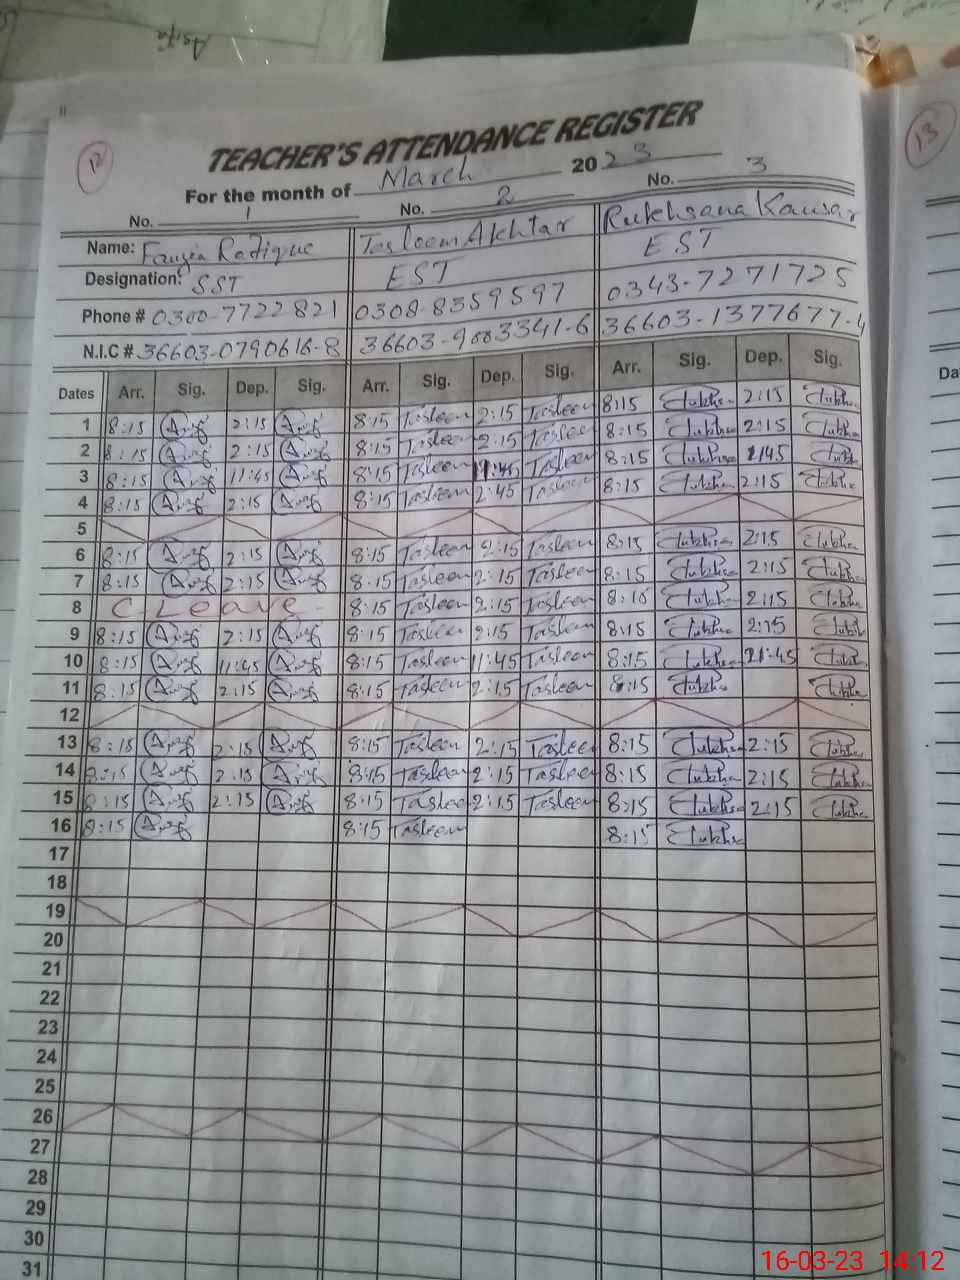 Asifa
12
13
TEACHER'S ATTENDANCE REGISTER
For the month of March 2023
No. 1 No. 2 No. 3
Name: Fauzia Rafique Tasleem Akhtar Rukhsana Kausar
Designation: SST EST EST
Phone # 0300-7722821 0308-8359597 0343-7271725
N.I.C # 36603-0790616-8 36603-9003341-6 36603-1377677-4
Dates Arr. Sig. Dep. Sig. Arr. Sig. Dep. Sig. Arr. Sig. Dep. Sig.
1 8:15 2:15 8:15 Tasleem 2:15 Tasleem 8:15 2:15
2 8:15 2:15 8:15 Tasleem 2:15 Tasleem 8:15 2:15
3 8:15 11:45 8:15 Tasleem 11:45 Tasleem 8:15 11:45
4 8:15 2:15 8:15 Tasleem 2:45 Tasleem 8:15 2:15
5
6 8:15 2:15 8:15 Tasleem 2:15 Tasleem 8:15 2:15
7 8:15 2:15 8:15 Tasleem 2:15 Tasleem 8:15 2:15
8 C-Leave 8:15 Tasleem 2:15 Tasleem 8:15 2:15
9 8:15 2:15 8:15 Tasleem 2:15 Tasleem 8:15 2:15
10 8:15 11:45 8:15 Tasleem 11:45 Tasleem 8:15
11 8:15 2:15 8:15 Tasleem 2:15 Tasleem 8:15
12
13 8:15 2:15 8:15 Tasleem 2:15 Tasleem 8:15 2:15
14 8:15 2:15 8:15 Tasleem 2:15 Tasleem 8:15 2:15
15 8:15 2:15 8:15 Tasleem 2:15 Tasleem 8:15 2:15
16 8:15 8:15 Tasleem 8:15
17
18
19
20
21
22
23
24
25
26
27
28
29
30
31
Da
16-03-23 14:12